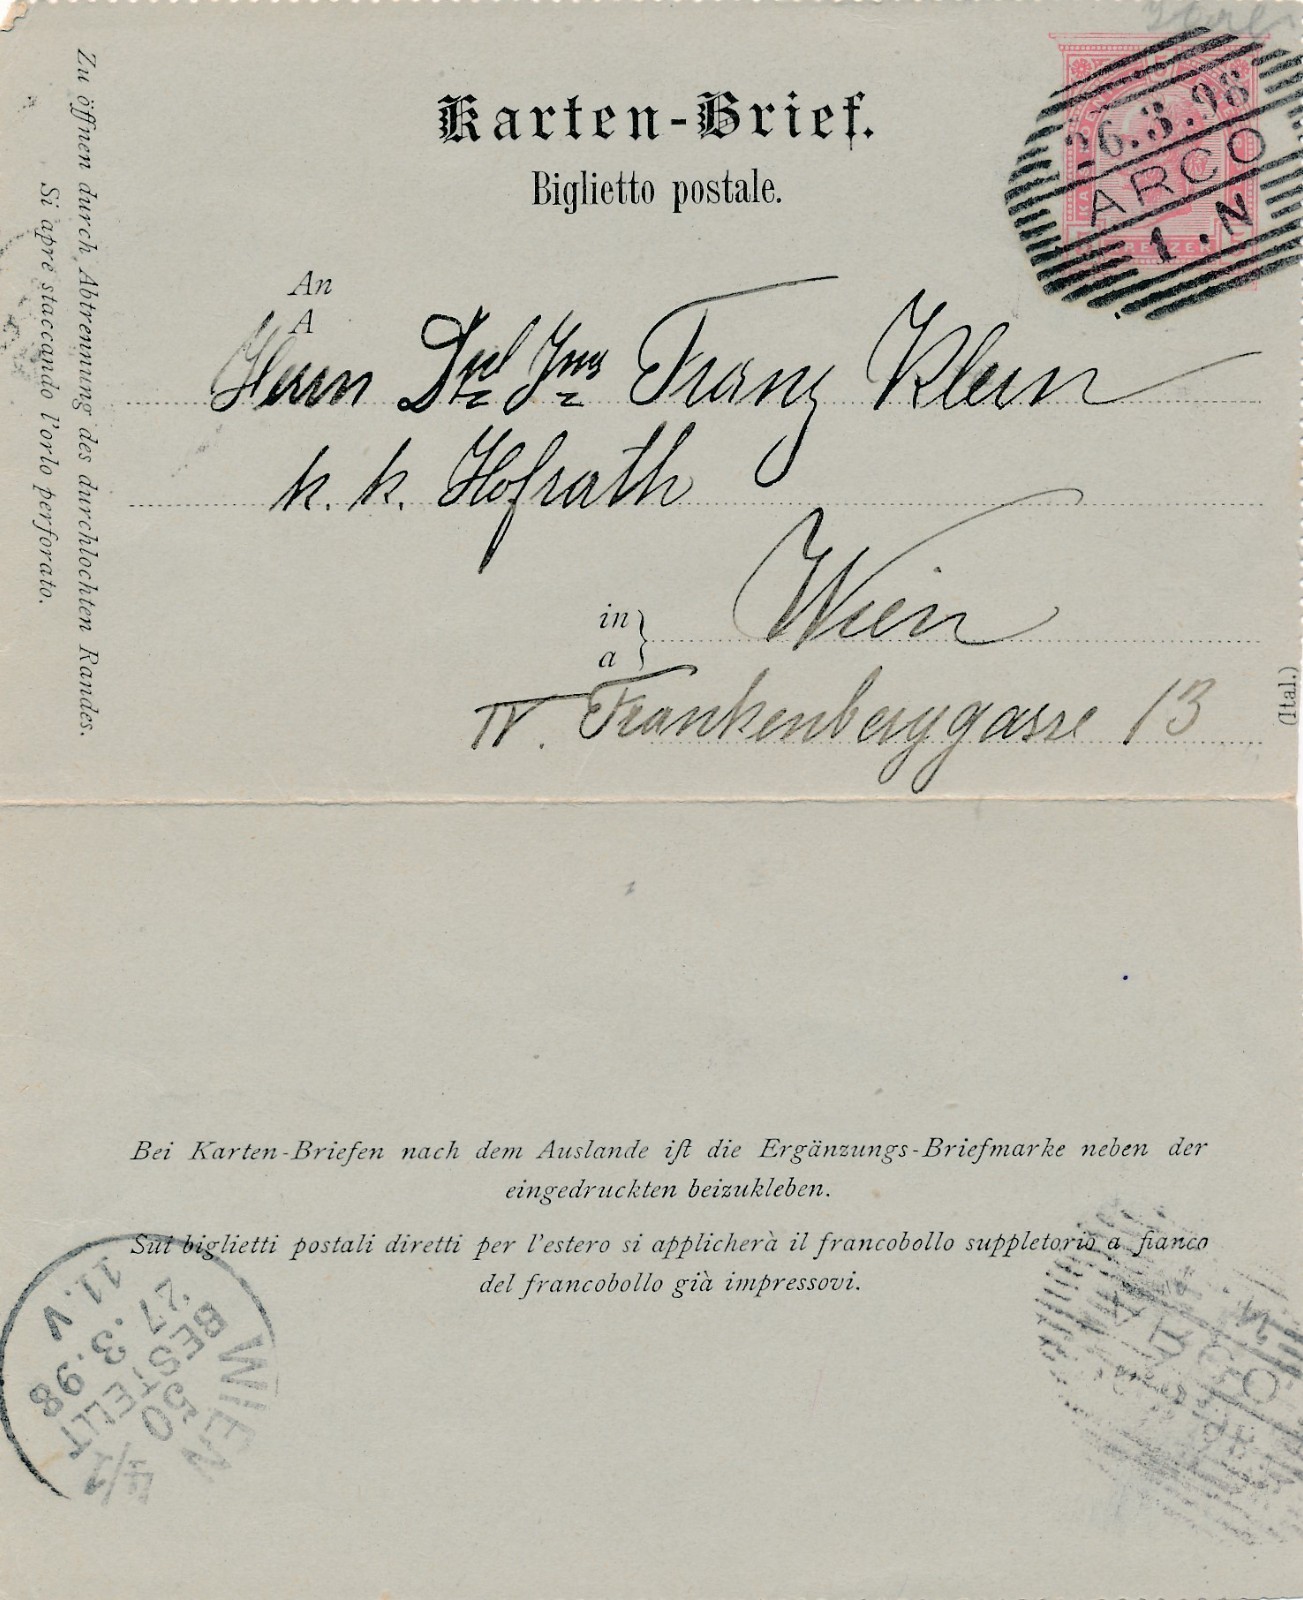 Karten-Brief.
Biglietto postale.
26.3.98
ARCO
1.N
KREUZER
An
A
Herrn Franz Klein
k. k. Hofrath
in
a
Wien
IV. Frankenberggasse 13
(Ital.)
Zu öffnen durch Abtrennung des durchlochten Randes.
Si apre staccando l'orlo perforato.
Bei Karten-Briefen nach dem Auslande iſt die Ergänzungs-Briefmarke neben der
eingedruckten beizukleben.
Sui biglietti postali diretti per l'estero si applicherà il francobollo suppletorio a fianco
del francobollo già impressovi.
WIEN
4/1
50
BESTELLT
27.3.98
11.V
ARCO